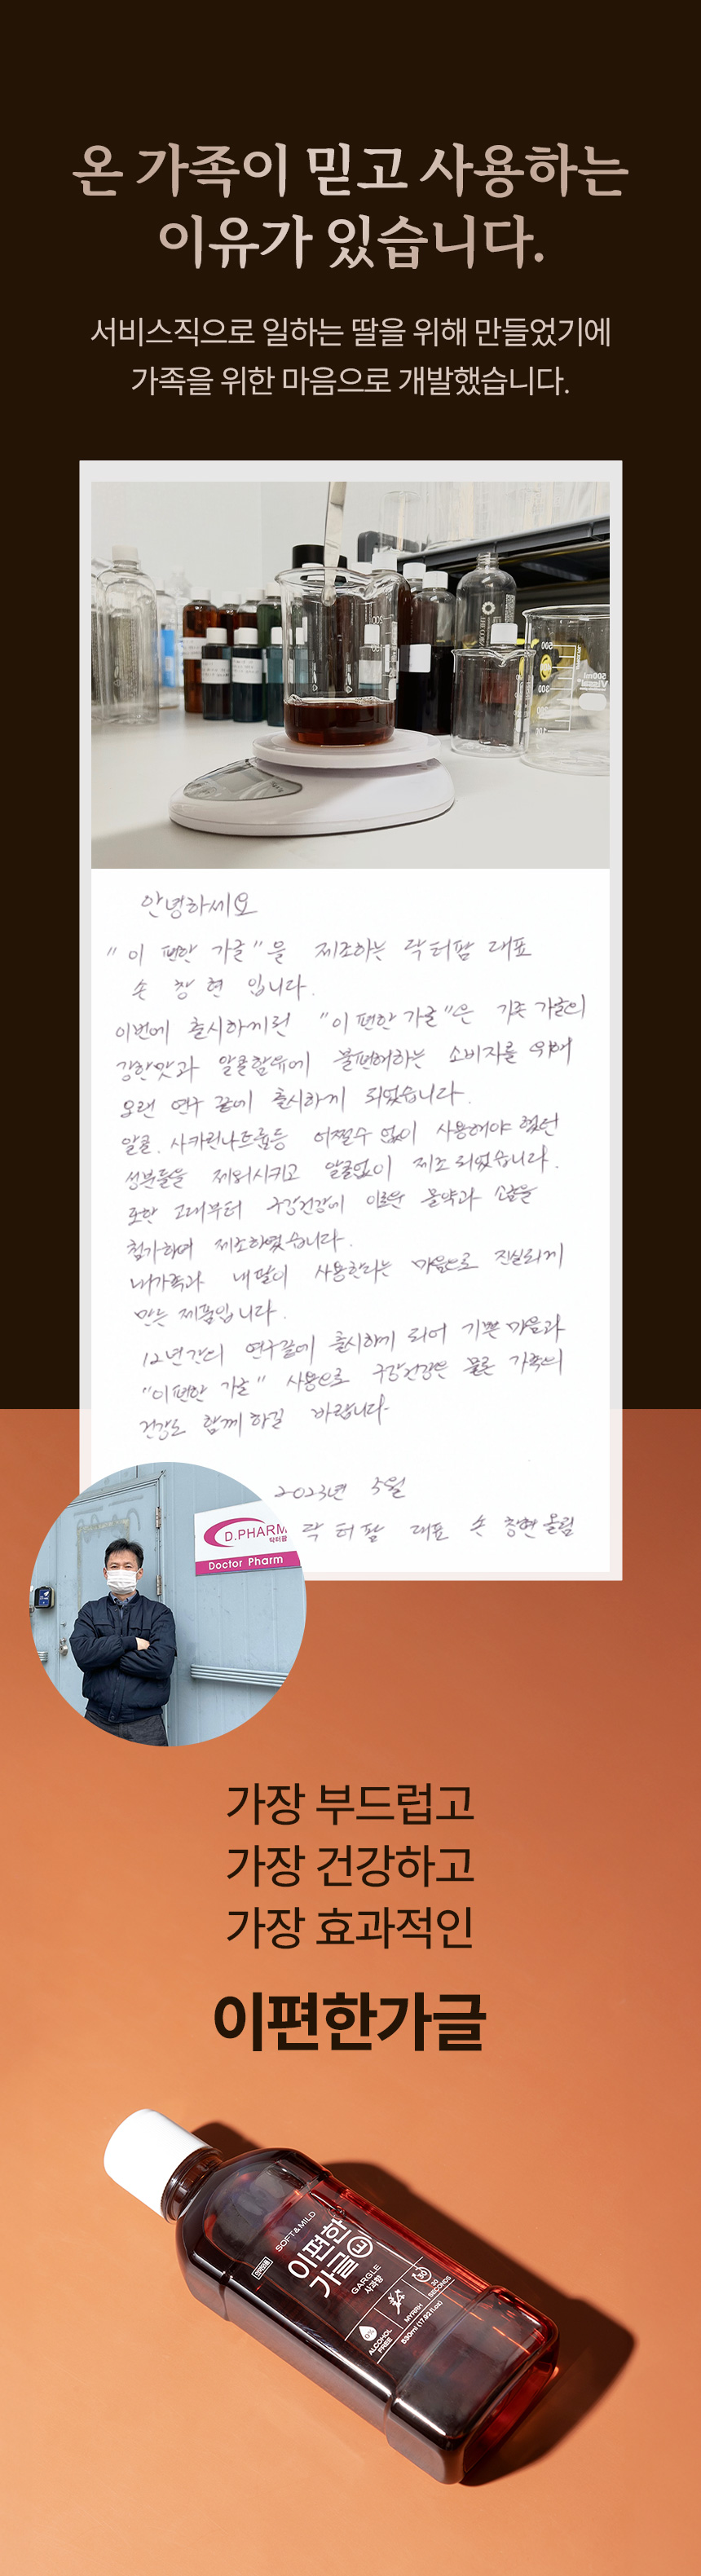 온 가족이 믿고 사용하는
이유가 있습니다.
서비스직으로 일하는 딸을 위해 만들었기에
가족을 위한 마음으로 개발했습니다.
안녕하세요
"이 편한 가글"을 제조하는 닥터팜 대표
손 창 현 입니다.
이번에 출시하게된 "이 편한 가글"은 기존 가글의
강한맛과 알콜함유에 불편해하는 소비자를 위해
오랜 연구 끝에 출시하게 되었습니다.
알콜, 사카린나트륨등 어쩔수 없이 사용해야 했던
성분들을 제외시키고 알콜없이 제조 되었습니다.
또한 고대부터 구강건강에 이로운 몰약과 소금을
첨가하여 제조하였습니다.
내가족과 내딸이 사용한다는 마음으로 진실되게
만든 제품입니다.
12년간의 연구끝에 출시하게 되어 기쁜 마음과
"이편한 가글" 사용으로 구강건강은 물론 가족의
건강도 함께 하길 바랍니다.
2023년 5월
닥터팜 대표 손 창현 올림
D.PHARM
닥터팜
Doctor Pharm
가장 부드럽고
가장 건강하고
가장 효과적인
이편한가글
SOFT & MILD
이편한
가글 E
GARGLE
사과향
0%
ALCOHOL
FREE
MYRRH
30
30
SECONDS
530ml (17.92 fl.oz)
500ml